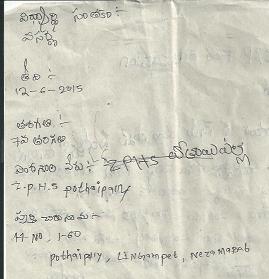 విద్యార్థి సంతకం :-
వసంత
తేది :-
12-6-2015
తరగతి :-
7వ తరగతి
పాఠశాల పేరు :- Z.P.H.S పోతాయిపల్లి
Z.P.H.S pothaipally
పూర్తి చిరునామా :-
H NO, 1-60
pothaipally, Lingampet, Nezamabad